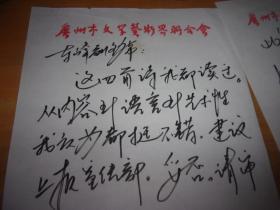 广州市文学艺术界联合会
这四首诗我都读过。
从内容到语言到艺术性
我认为都挺不错。建议
上报宣传部。妥否,请审